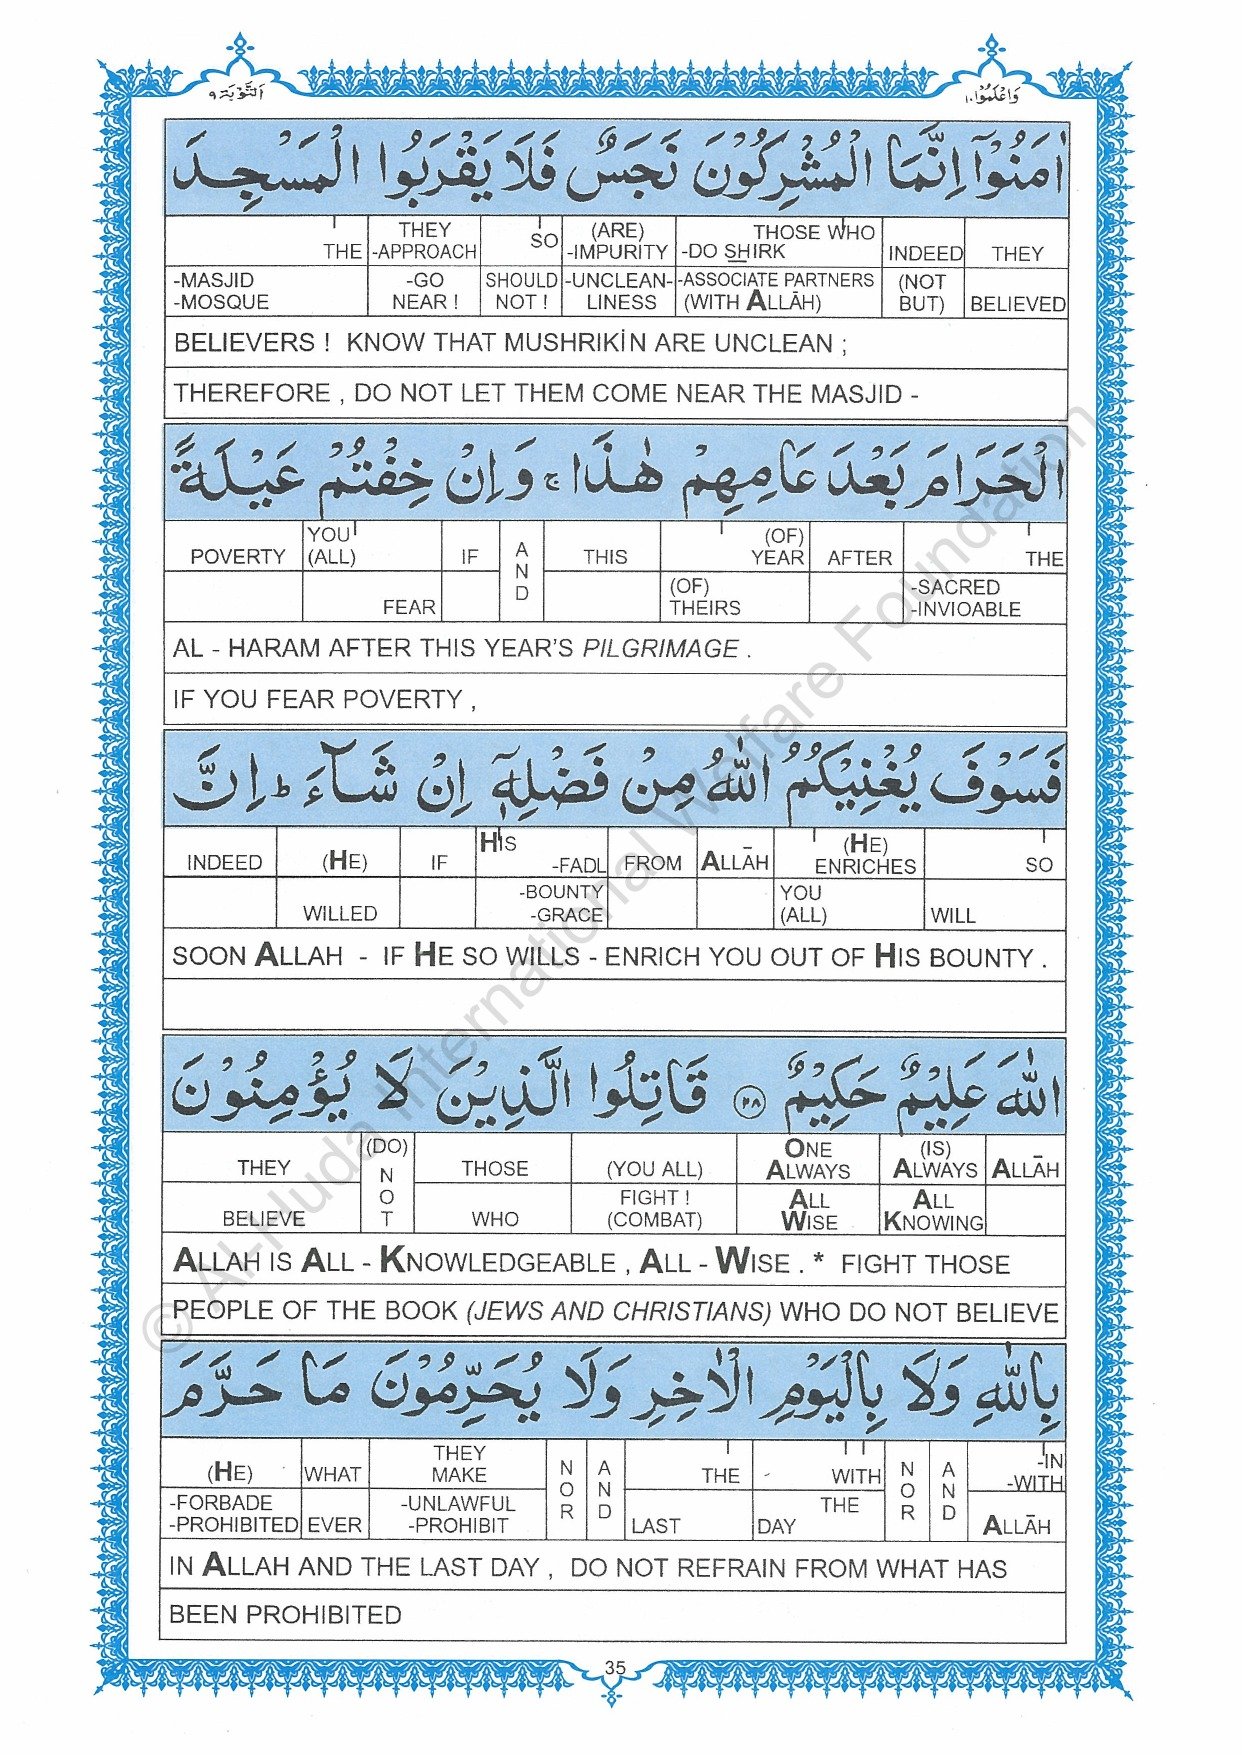 اَلتَّوْبَة ٩
وَاعْلَمُوْا ١٠
اٰمَنُوْۤا اِنَّمَا الْمُشْرِكُوْنَ نَجَسٌ فَلَا يَقْرَبُوا الْمَسْجِدَ
THE THEY -APPROACH SO (ARE) -IMPURITY THOSE WHO -DO SHIRK INDEED THEY
-MASJID -MOSQUE -GO NEAR ! SHOULD NOT ! -UNCLEAN-LINESS -ASSOCIATE PARTNERS (WITH ALLĀH) (NOT BUT) BELIEVED
BELIEVERS ! KNOW THAT MUSHRIKİN ARE UNCLEAN ;
THEREFORE , DO NOT LET THEM COME NEAR THE MASJID -
الْحَرَامَ بَعْدَ عَامِهِمْ هٰذَا ۚ وَاِنْ خِفْتُمْ عَيْلَةً
POVERTY YOU (ALL) IF AND THIS (OF) YEAR AFTER THE
FEAR (OF) THEIRS -SACRED -INVIOABLE
AL - HARAM AFTER THIS YEAR'S PILGRIMAGE .
IF YOU FEAR POVERTY ,
فَسَوْفَ يُغْنِيْكُمُ اللّٰهُ مِنْ فَضْلِهٖۤ اِنْ شَآءَ ؕ اِنَّ
INDEED (HE) IF HIS -FADL FROM ALLĀH (HE) ENRICHES SO
WILLED -BOUNTY -GRACE YOU (ALL) WILL
SOON ALLAH - IF HE SO WILLS - ENRICH YOU OUT OF HIS BOUNTY .
اللّٰهَ عَلِيْمٌ حَكِيْمٌ ۝٢٨ قَاتِلُوا الَّذِيْنَ لَا يُؤْمِنُوْنَ
THEY (DO) NOT THOSE (YOU ALL) ONE ALWAYS (IS) ALWAYS ALLĀH
BELIEVE WHO FIGHT ! (COMBAT) ALL WISE ALL KNOWING
ALLAH IS ALL - KNOWLEDGEABLE , ALL - WISE . * FIGHT THOSE
PEOPLE OF THE BOOK (JEWS AND CHRISTIANS) WHO DO NOT BELIEVE
بِاللّٰهِ وَلَا بِالْيَوْمِ الْاٰخِرِ وَلَا يُحَرِّمُوْنَ مَا حَرَّمَ
(HE) WHAT THEY MAKE NOR AND THE - WITH NOR AND -IN -WITH
-FORBADE -PROHIBITED EVER -UNLAWFUL -PROHIBIT LAST THE DAY ALLĀH
IN ALLAH AND THE LAST DAY , DO NOT REFRAIN FROM WHAT HAS
BEEN PROHIBITED
35
© Al-Huda International Welfare Foundation